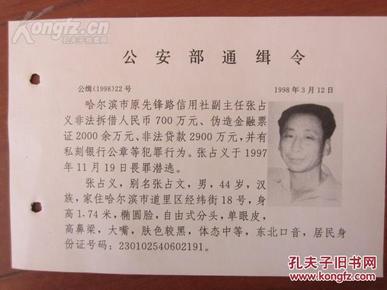 Kongfz.com
公安部通缉令
公缉(1998)22号
1998年3月12日
哈尔滨市原先锋路信用社副主任张占
义非法拆借人民币700万元、伪造金融票
证2000余万元、非法贷款2900万元,并有
私刻银行公章等犯罪行为。张占义于1997
年11月19日畏罪潜逃。
张占义,别名张占文,男,44岁,汉
族,家住哈尔滨市道里区经纬街18号,身
高1.74米,椭圆脸,自由式分头,单眼皮,
高鼻梁,大嘴,肤色较黑,体态中等,东北口音,居民身
份证号码:230102540602191。
孔夫子旧书网